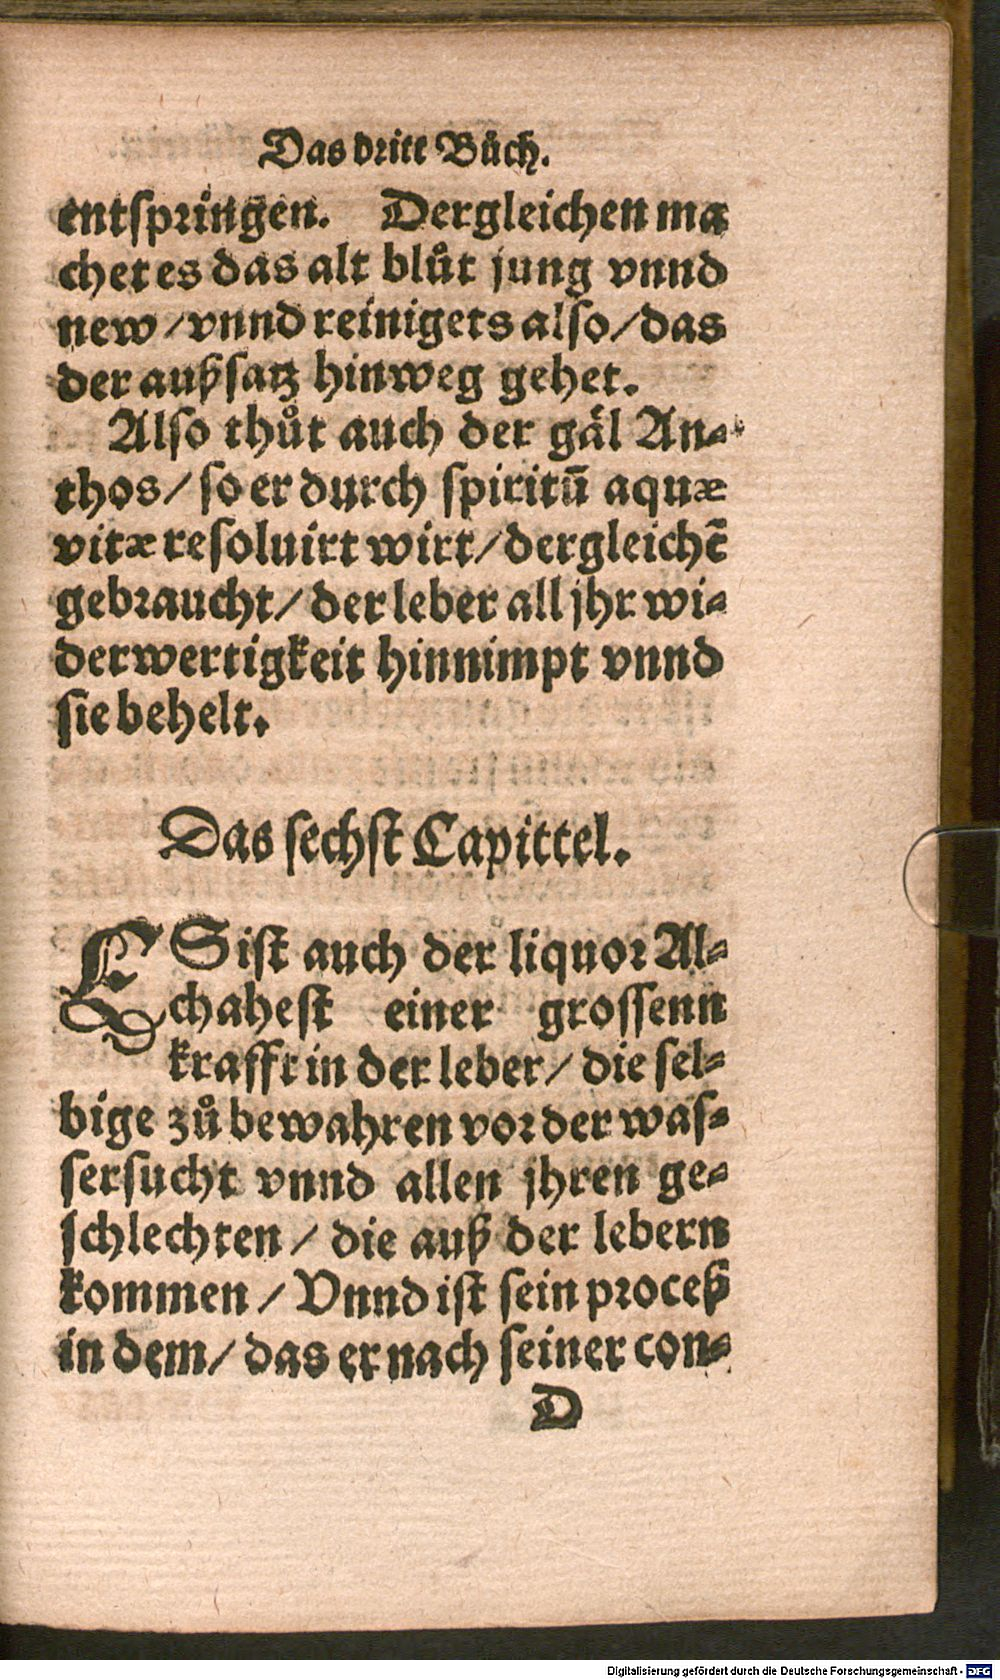 Das dritt Bůch.
entspringen. Dergleichen ma
chet es das alt blůt jung vnnd
new / vnnd reinigets also / das
der außsatz hinweg gehet.
Also thůt auch der gäl An-
thos / so er durch spiritū aquæ
vitæ resoluirt wirt / dergleichē
gebraucht / der leber all jhr wi-
derwertigkeit hinnimpt vnnd
sie behelt.
Das sechst Capittel.
ES ist auch der liquor Al-
chahest einer grossenn
krafft in der leber / die sel-
bige zů bewahren vor der was-
sersucht vnnd allen jhren ge-
schlechten / die auß der lebern
kommen / Vnnd ist sein proceß
in dem / das er nach seiner con-
D
Digitalisierung gefördert durch die Deutsche Forschungsgemeinschaft - DFG